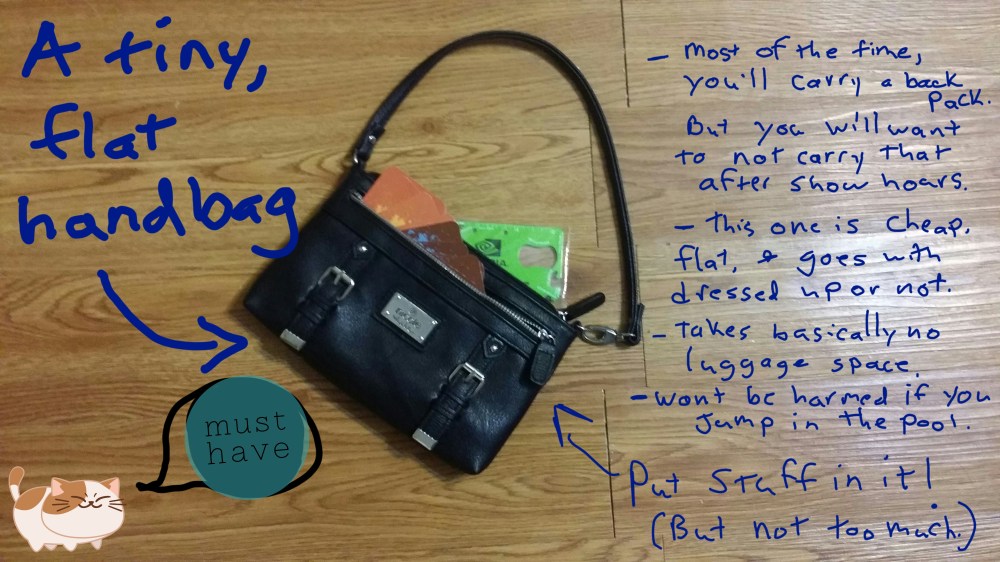 A tiny,
flat
handbag
must
have
- most of the time,
you'll carry a back
pack.
But you will want
to not carry that
after show hoars.
- this one is cheap,
flat, & goes with
dressed up or not.
- takes basically no
luggage space.
- wont be harmed if you
jump in the pool.
Put stuff in it!
(But not too much.)